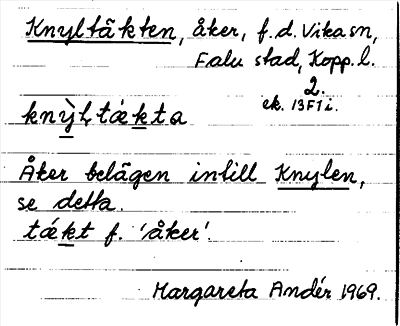 Knyltäkten, åker, f.d. Vika sn,
Falu stad, Kopp. l.
2.
ek. 13F1i.
knỳl,tǽkta
Åker belägen intill Knylen,
se detta.
tǽkt f. 'åker'.
Margareta Andér 1969.